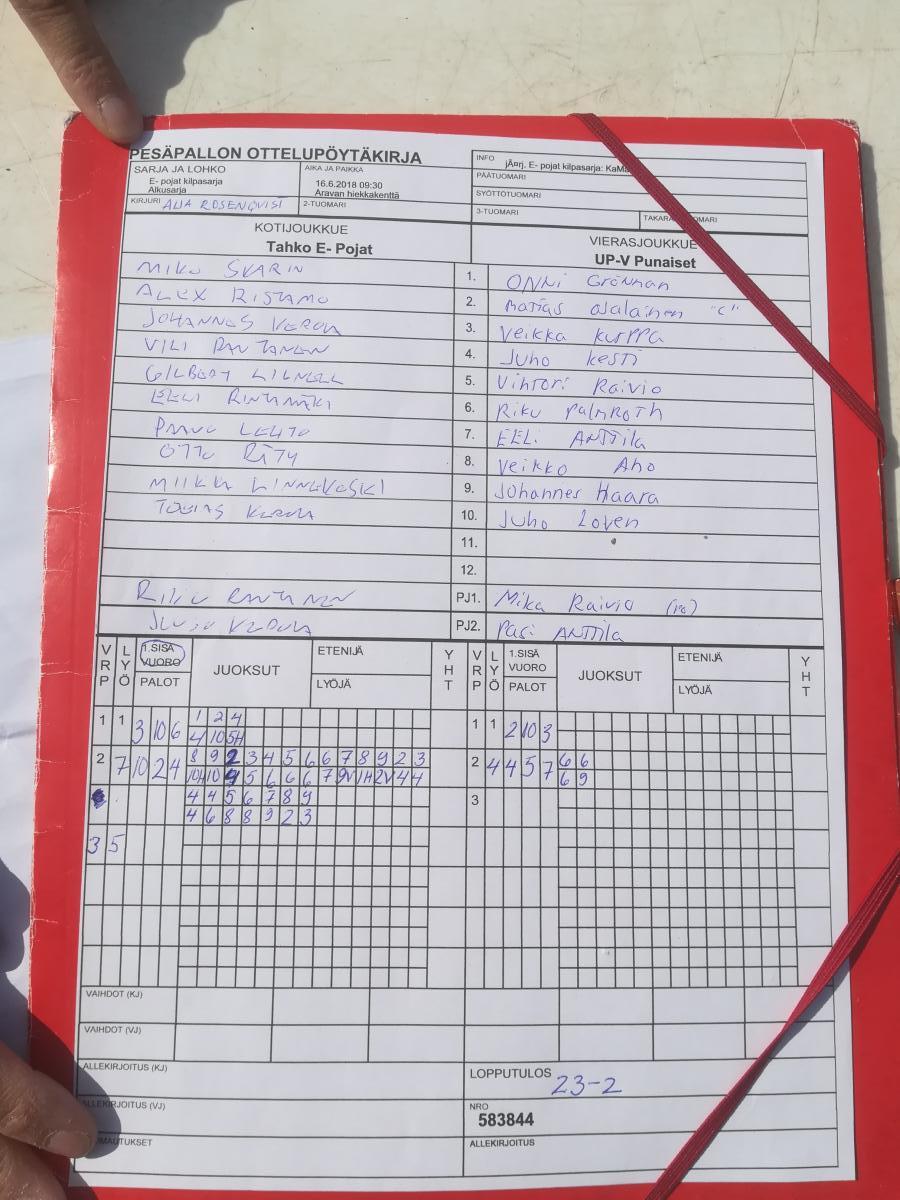 PESÄPALLON OTTELUPÖYTÄKIRJA
SARJA JA LOHKO
E- pojat kilpasarja
Alkusarja
AIKA JA PAIKKA
16.6.2018 09:30
Aravan hiekkakenttä
INFO
jÄnrj. E- pojat kilpasarja: KaMa
PÄÄTUOMARI
SYÖTTÖTUOMARI
KIRJURI
2-TUOMARI
3-TUOMARI
KOTIJOUKKUE
Tahko E- Pojat
VIERASJOUKKUE
UP-V Punaiset
MIKU SKARIN 1. ONNi Grönman
ALEX RISTAMO 2. "C"
JOHANNES 3. Veikka Kurppa
VILI RANTANEN 4. Juho Kesti
5. Vihtori Raivio
EELI RINTAMÄKI 6. Riku Palmroth
PAAVO LEHTO 7. EELi ANTTila
OTTO RÄTY 8. Veikko Aho
MIIKKA LINNAKOSKI 9. Johannes Haara
TOBIAS 10. Juho Loven
11.
12.
RANTANEN PJ1. Mika Raivio
PJ2. Pasi ANTTila
VRP LYÖ 1.SISÄ VUORO PALOT JUOKSUT ETENIJÄ LYÖJÄ YHT
VRP LYÖ 1.SISÄ VUORO PALOT JUOKSUT ETENIJÄ LYÖJÄ YHT
1 1 3 10 6 1 2 4
4 10 5H
1 1 2 10 3
2 7 10 2 4 8 9 2 3 4 5 6 6 7 8 9 2 3
10H 10 4 5 6 6 6 7 9V 1H 2V 4 4
2 4 4 5 7 6 6
6 9
4 4 5 6 7 8 9
4 6 8 8 9 2 3
3
3 5
VAIHDOT (KJ)
VAIHDOT (VJ)
ALLEKIRJOITUS (KJ)
LOPPUTULOS 23-2
ALLEKIRJOITUS (VJ)
NRO
583844
ALLEKIRJOITUS